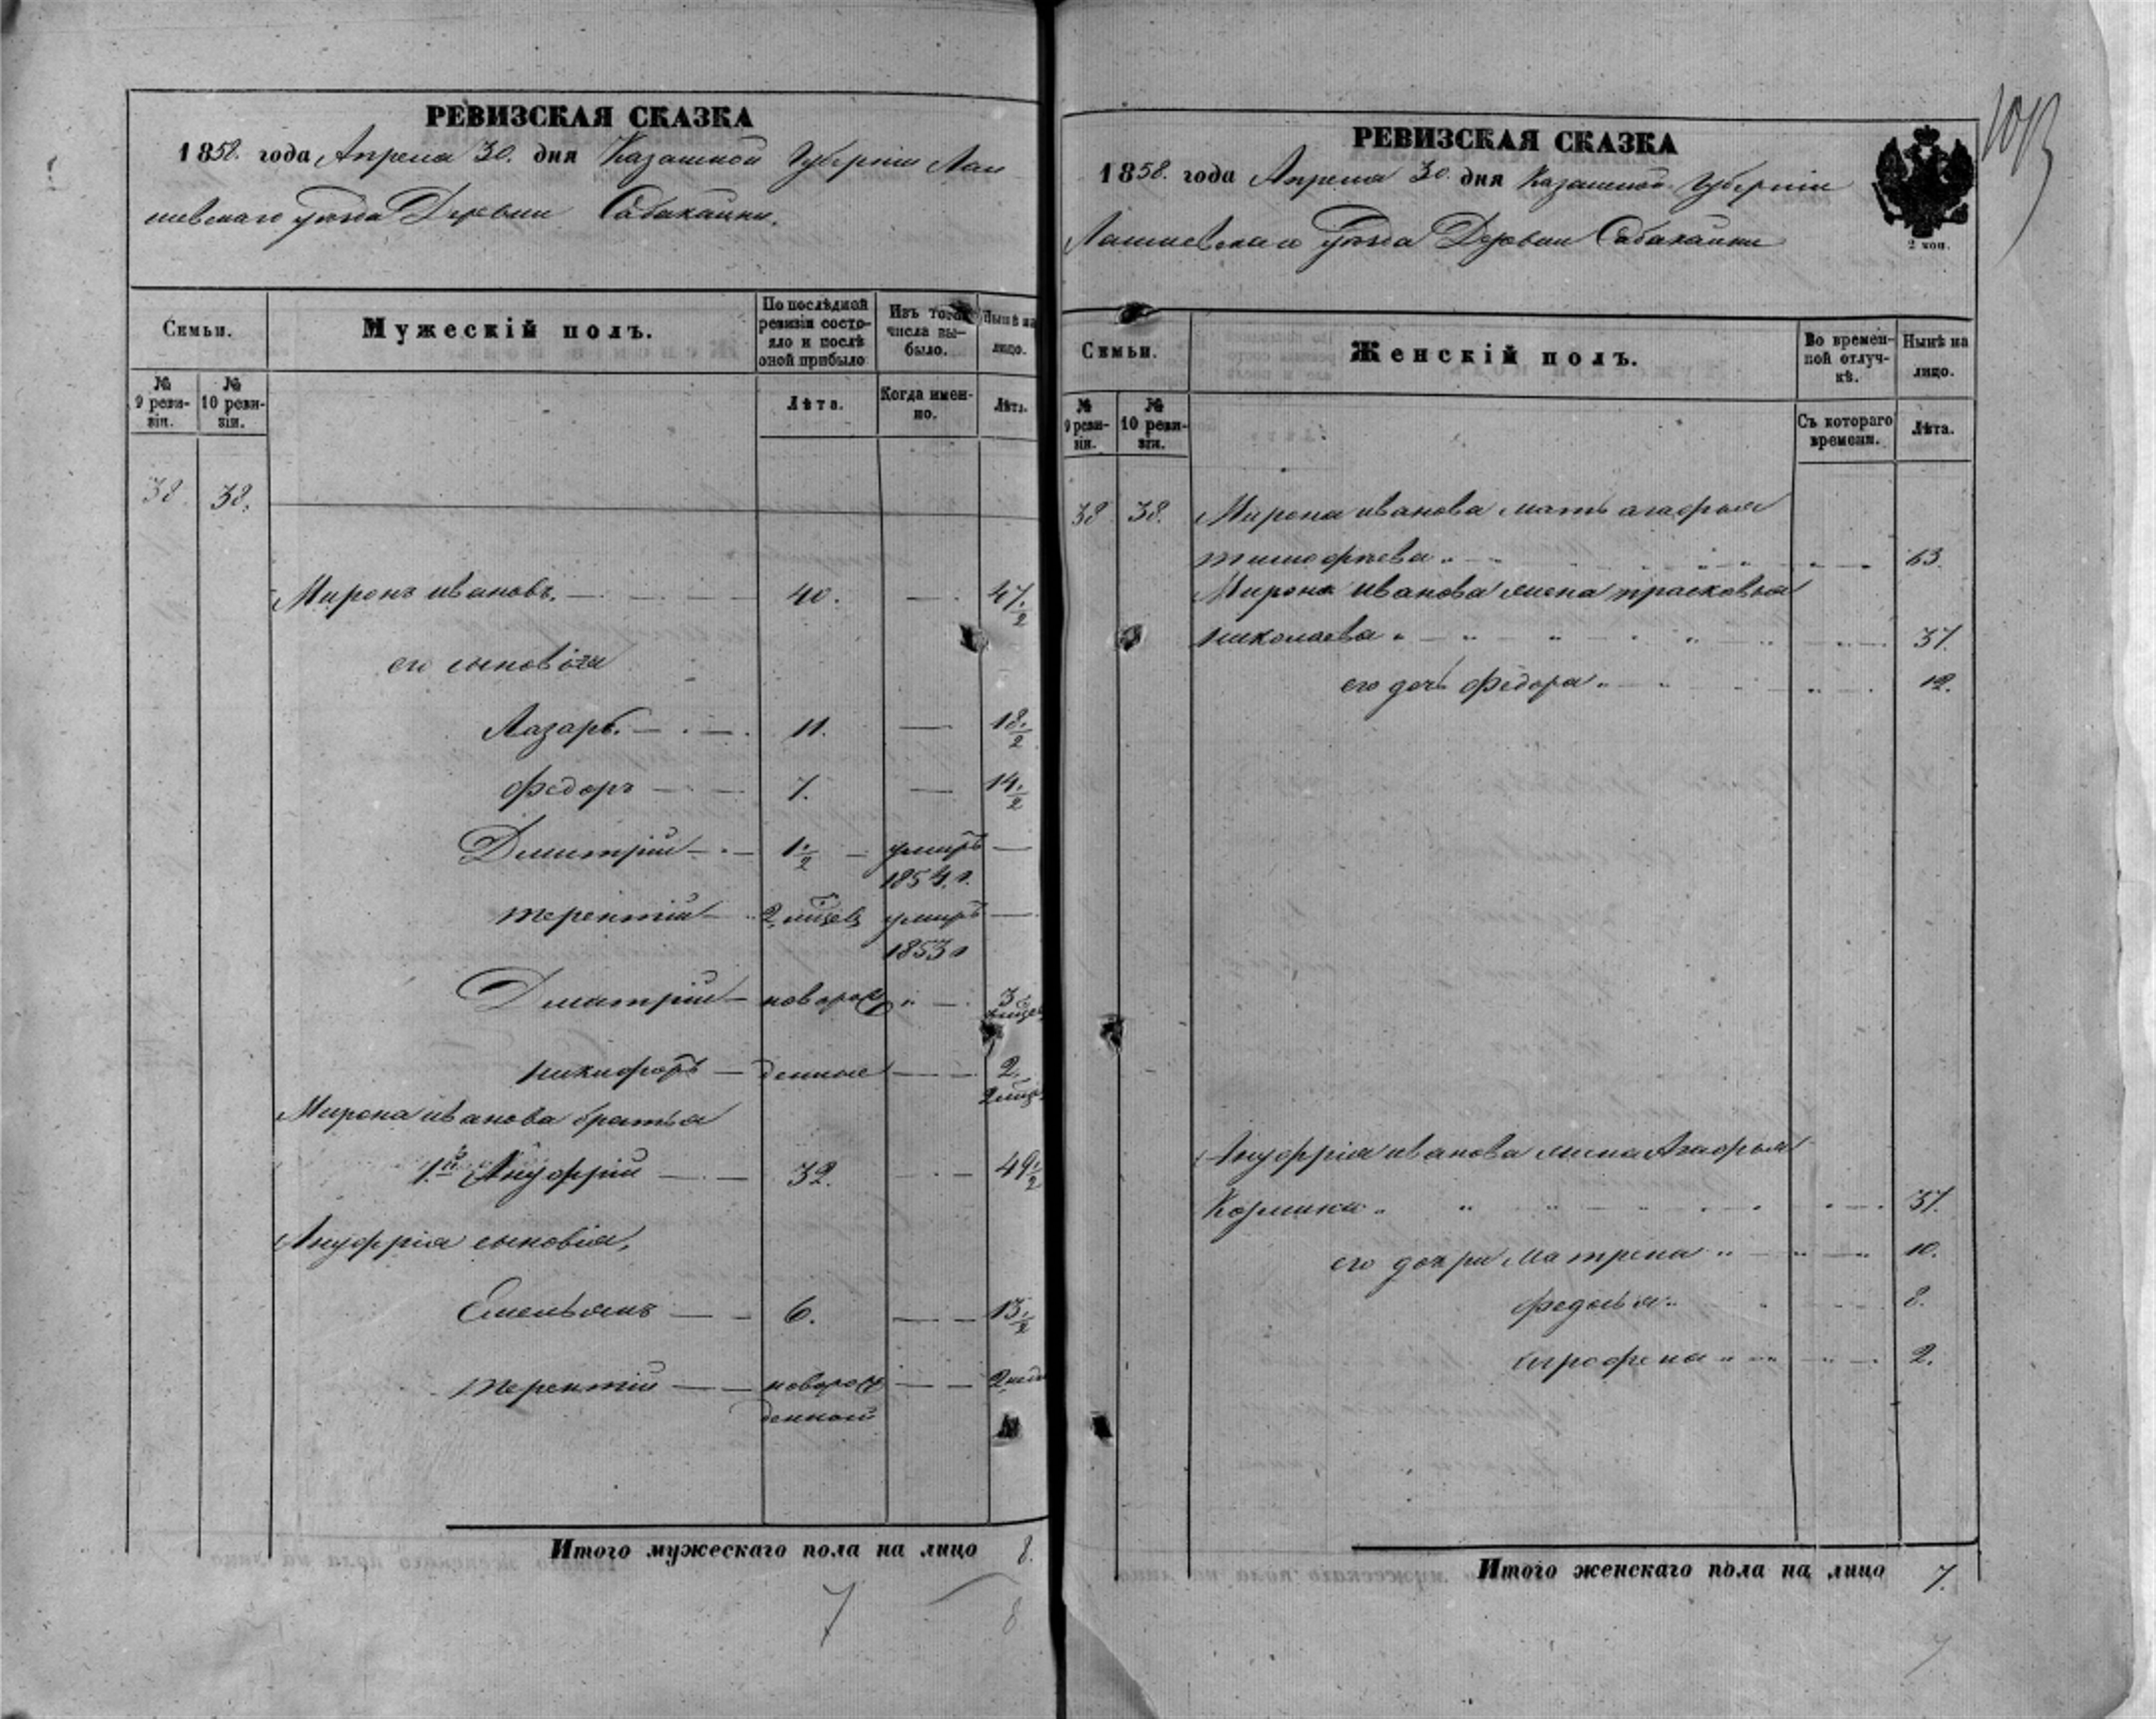 РЕВИЗСКАЯ СКАЗКА
1858. года Апреля 30. дня Казанской Губерніи Лаи
шевскаго уезда Деревни Сабакайки.
Семьи.
Мужескій полъ.
По послѣдней ревизіи состояло и послѣ оной прибыло
Изъ того числа выбыло.
Нынѣ на лицо.
№ 9 ревизіи.
№ 10 ревизіи.
Лѣта.
Когда именно.
Лѣта.
38. 38.
Миронъ ивановъ. 40. 47 1/2
его сыновья
Лазарь. 11. 18 1/2
федоръ 7. 14 1/2
Димитрій 1 1/2 умиръ
1854. г.
терентій 2 умиръ
1853 г
Дмитрій новорож 3
никифоръ денные 2
Мирона иванова братья
1й Ануфрій 32. 49 1/2
Ануфрія сыновія,
Емельянъ 6. 13 1/2
терентій новорож 2 неде
денной
Итого мужескаго пола на лицо 8.
7 8
1013
РЕВИЗСКАЯ СКАЗКА
1858. года Апреля 30. дня Казанской Губерніи
Лаишевскаго уезда Деревни Сабакайки
2 коп.
Семьи.
Женскій полъ.
Во временной отлучкѣ.
Нынѣ на лицо.
№ 9 ревизіи.
№ 10 ревизіи.
Съ котораго времени.
Лѣта.
38 38. Мирона иванова мать агафья
тимофѣева 63.
Мирона иванова жена прасковья
николаева 37.
его дочь федора 12.
Ануфрія иванова жена Агафья
Козмина 37.
его дочри матрена 10.
федосья 8.
2.
Итого женскаго пола на лицо 7.
7